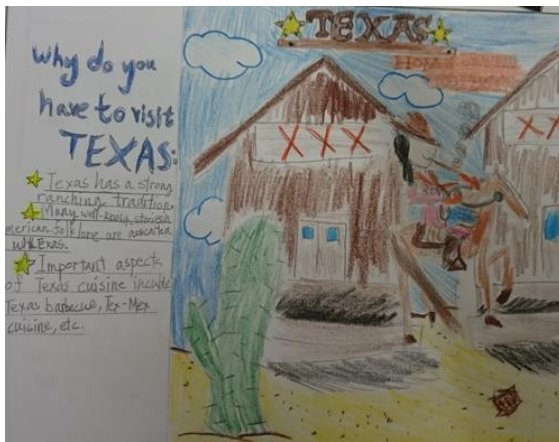 why do you
have to visit
TEXAS:
Texas has a strong
ranching tradition.
Many well-known stories a
merican folklore are associated
with Texas.
Important aspects
of Texas cuisine include
Texas barbecue, Tex-Mex
cuisine, etc.
TEXAS
XXX